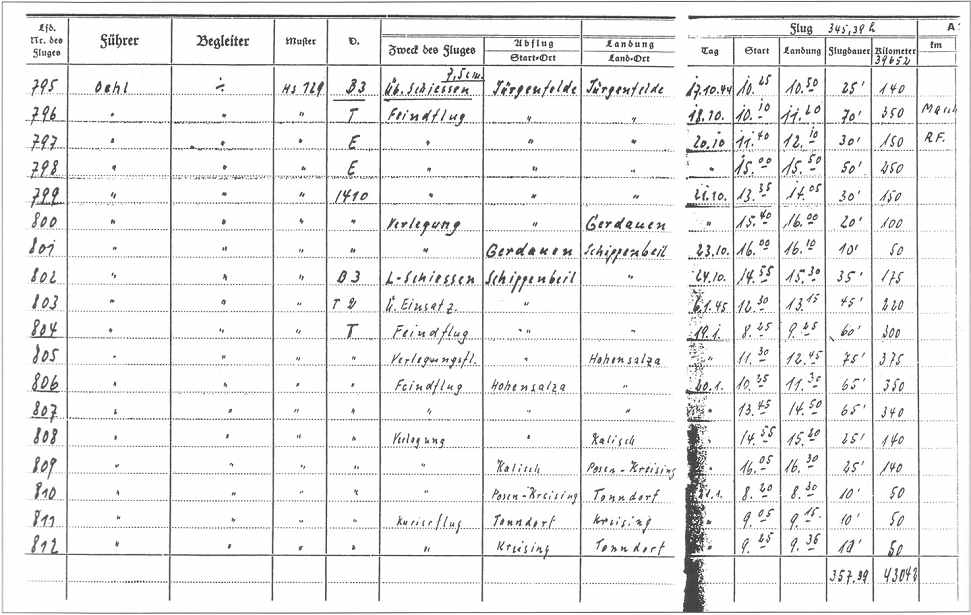 Lfd. Nr. des Fluges Führer Begleiter Muster Zweck des Fluges Abflug Start-Ort Landung Land-Ort Tag Flug 345,39 h Start Landung Flugdauer Kilometer 39652 km A
795 Oehl ÷ Hs 129 B3 Üb. Schiessen 7,5 cm. Jürgenfelde Jürgenfelde 17.10.44 10.25 10.50 25' 140
796 " " " T Feindflug " " 18.10. 10.10 11.20 70' 350
797 " " " E " " " 20.10 11.40 12.10 30' 150 R.F.
798 " " " E " " " " 15.00 15.50 50' 250
799 " " " 1410 " " " 21.10. 13.35 14.05 30' 150
800 " " " " Verlegung " Gerdauen " 15.40 16.00 20' 100
801 " " " " " Gerdauen Schippenbeil 23.10. 16.00 16.10 10' 50
802 " " " B3 L-Schiessen Schippenbeil " 24.10. 14.55 15.30 35' 175
803 " " " T Ü. Einsatz. " 6.1.45 12.30 13.15 45' 220
804 " " " T Feindflug " " 19.1. 8.25 9.25 60' 300
805 " " " " Verlegungsfl. " Hohensalza " 11.30 12.45 75' 375
806 " " " " Feindflug Hohensalza " 20.1. 10.25 11.30 65' 350
807 " " " " " " " " 13.45 14.50 65' 340
808 " " " " Verlegung " Kalisch " 14.55 15.20 25' 140
809 " " " " " Kalisch Posen-Kreising " 16.05 16.30 25' 140
810 " " " " Posen-Kreising Tonndorf 21.1. 8.20 8.30 10' 50
811 " " " " Kurierflug Tonndorf Kreising " 9.05 9.15 10' 50
812 " " " " " Kreising Tonndorf " 9.25 9.35 10' 50
357,39 43042